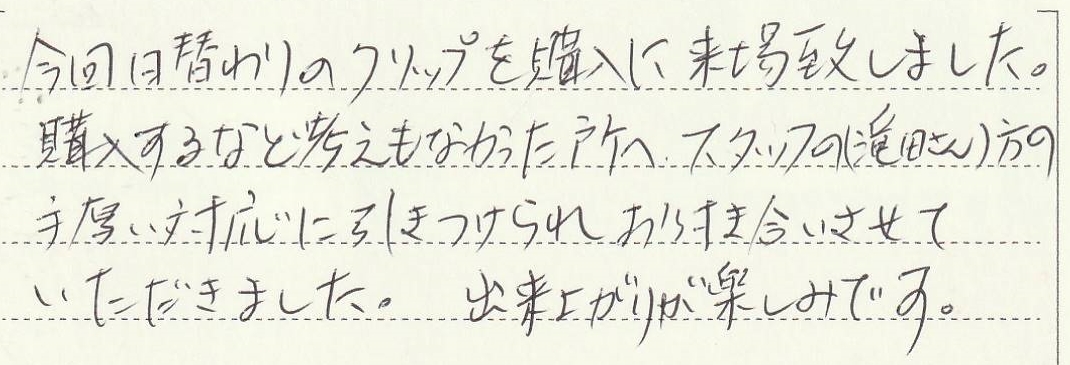 今回日替わりのクリップを購入に来場致しました。
購入するなど考えもなかった所へ、スタッフの(滝田さん)方の
手厚い対応に引きつけられお付き合いさせて
いただきました。 出来上がりが楽しみです。